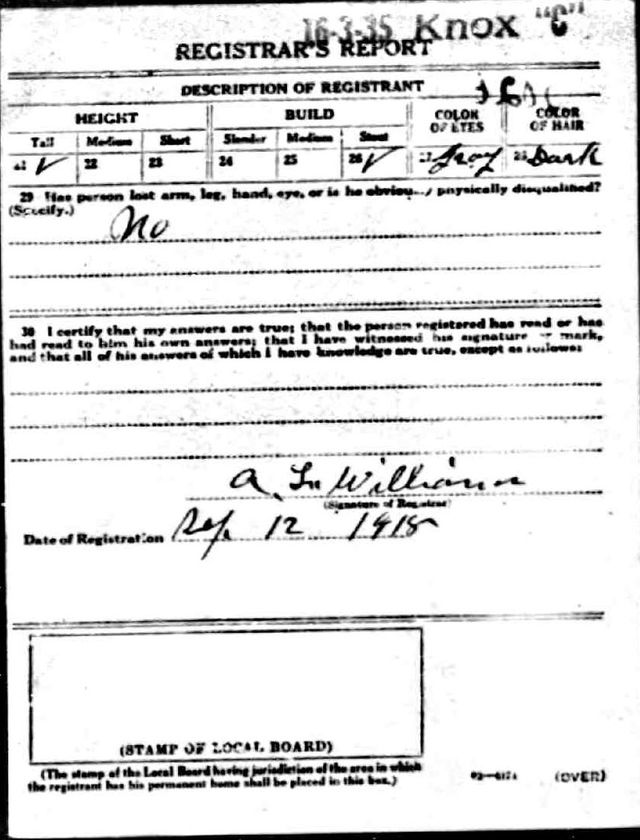 16-3-35 Knox "C"
REGISTRAR'S REPORT
DESCRIPTION OF REGISTRANT
HEIGHT BUILD COLOR OF EYES COLOR OF HAIR
Tall Medium Short Slender Medium Stout
21 ✓ 22 23 24 25 26 ✓ 27 Gray 28 Dark
29 Has person lost arm, leg, hand, eye, or is he obviously physically disqualified?
(Specify.)
No
30 I certify that my answers are true; that the person registered has read or has
had read to him his own answers; that I have witnessed his signature or mark,
and that all of his answers of which I have knowledge are true, except as follows:
(Signature of Registrar)
Date of Registration Sep. 12 1918
(STAMP OF LOCAL BOARD)
(The stamp of the Local Board having jurisdiction of the area in which
the registrant has his permanent home shall be placed in this box.)
(OVER)